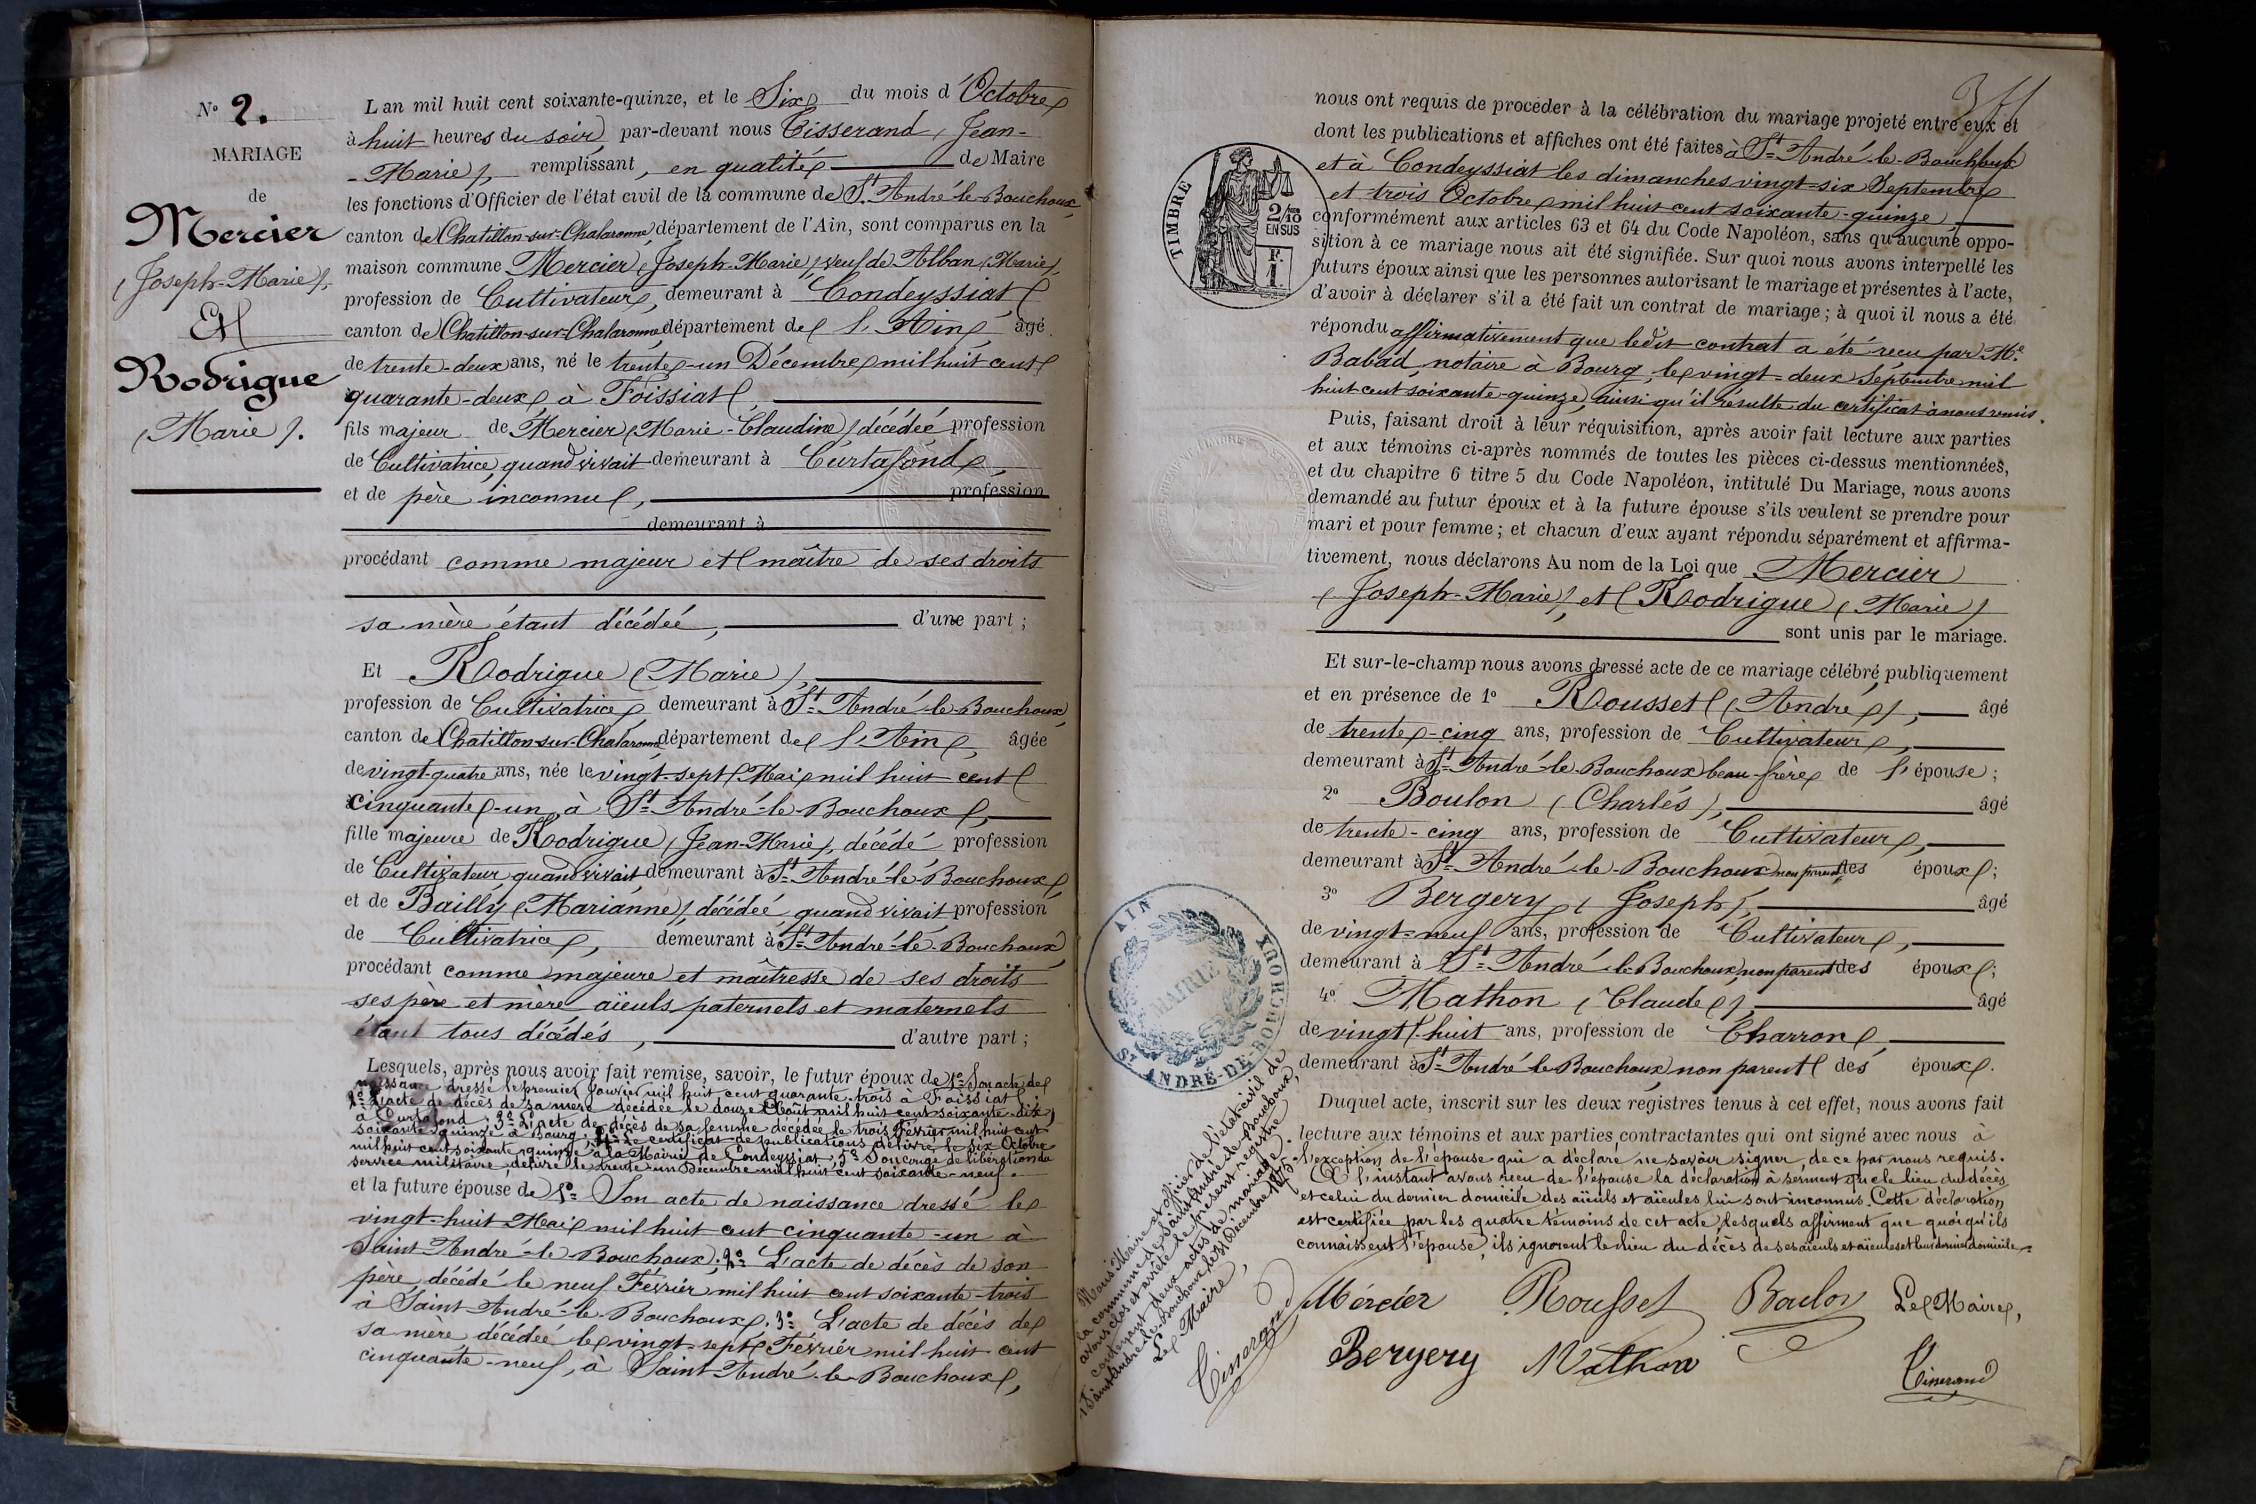 N° 2.
MARIAGE
de
Mercier
(Joseph-Marie),
Et
Rodrigue
(Marie).
L'an mil huit cent soixante-quinze, et le Six du mois d'Octobre
à huit heures du soir, par-devant nous Tisserand, Jean-
-Marie), remplissant, en qualité de Maire
les fonctions d'Officier de l'état civil de la commune de St André-le-Bouchoux,
canton de Chatillon-sur-Chalaronne, département de l'Ain, sont comparus en la
maison commune Mercier (Joseph-Marie), veuf de Alban (Marie),
profession de Cultivateur, demeurant à Condeyssiat
canton de Chatillon-sur-Chalaronne, département de l'Ain, âgé
de trente-deux ans, né le trente-un Décembre mil huit cent
quarante-deux à Foissiat,
fils majeur de Mercier (Marie-Claudine) décédée profession
de Cultivatrice, quand vivait demeurant à Curtafond,
et de père inconnu, profession
demeurant à
procédant comme majeur et maître de ses droits
sa mère étant décédée, d'une part ;
Et Rodrigue (Marie),
profession de Cultivatrice, demeurant à St André-le-Bouchoux,
canton de Chatillon-sur-Chalaronne, département de l'Ain, âgée
de vingt-quatre ans, née le vingt-sept Mai mil huit cent
cinquante-un, à St André-le-Bouchoux,
fille majeure de Rodrigue (Jean-Marie), décédé profession
de Cultivateur quand vivait demeurant à St André-le-Bouchoux,
et de Bailly (Marianne), décédée quand vivait profession
de Cultivatrice, demeurant à St André-le-Bouchoux,
procédant comme majeure et maîtresse de ses droits
ses père et mère aïeuls paternels et maternels
étant tous décédés, d'autre part ;
Lesquels, après nous avoir fait remise, savoir, le futur époux de 1° Son acte de
naissance dressé le premier Janvier mil huit cent quarante-trois à Foissiat
2° L'acte de décès de sa mère décédée le douze Août mil huit cent soixante-dix,
à Curtafond, 3° L'acte de décès de sa femme décédée le trois Février mil huit cent
soixante-quinze à Bourg, 4° Le certificat de publications délivré le six Octobre
mil huit cent soixante-quinze à la Mairie de Condeyssiat, 5° Son congé de libération du
service militaire, délivré le trente-un Décembre mil huit cent soixante-neuf.
et la future épouse de 1° Son acte de naissance dressé le
vingt-huit Mai mil huit cent cinquante-un à
Saint André-le-Bouchoux; 2° L'acte de décès de son
père décédé le neuf Février mil huit cent soixante-trois
à Saint-André-le-Bouchoux. 3° L'acte de décès de
sa mère décédée le vingt-sept Février mil huit cent
cinquante-neuf, à Saint-André-le-Bouchoux,
nous ont requis de procéder à la célébration du mariage projeté entre eux et
dont les publications et affiches ont été faites à St André-le-Bouchoux
et à Condeyssiat les dimanches vingt-six Septembre
et trois Octobre mil huit cent soixante-quinze
conformément aux articles 63 et 64 du Code Napoléon, sans qu'aucune oppo-
sition à ce mariage nous ait été signifiée. Sur quoi nous avons interpellé les
futurs époux ainsi que les personnes autorisant le mariage et présentes à l'acte,
d'avoir à déclarer s'il a été fait un contrat de mariage ; à quoi il nous a été
répondu affirmativement que ledit contrat a été reçu par Me
Babad notaire à Bourg, le vingt-deux Septembre mil
huit cent soixante-quinze, ainsi qu'il résulte du certificat à nous remis.
Puis, faisant droit à leur réquisition, après avoir fait lecture aux parties
et aux témoins ci-après nommés de toutes les pièces ci-dessus mentionnées,
et du chapitre 6 titre 5 du Code Napoléon, intitulé Du Mariage, nous avons
demandé au futur époux et à la future épouse s'ils veulent se prendre pour
mari et pour femme ; et chacun d'eux ayant répondu séparément et affirma-
tivement, nous déclarons Au nom de la Loi que Mercier
(Joseph-Marie), et Rodrigue (Marie)
sont unis par le mariage.
Et sur-le-champ nous avons dressé acte de ce mariage célébré publiquement
et en présence de 1° Rousset (André), âgé
de trente-cinq ans, profession de Cultivateur,
demeurant à St André-le-Bouchoux beau-frère de l'épouse ;
2° Boulon (Charles), âgé
de trente-cinq ans, profession de Cultivateur,
demeurant à St André-le-Bouchoux non parent des époux ;
3° Bergery (Joseph), âgé
de vingt-neuf ans, profession de Cultivateur,
demeurant à St André-le-Bouchoux, non parent des époux ;
4° Mathon (Claude), âgé
de vingt-huit ans, profession de Charron,
demeurant à St André-le-Bouchoux non parent des époux.
Duquel acte, inscrit sur les deux registres tenus à cet effet, nous avons fait
lecture aux témoins et aux parties contractantes qui ont signé avec nous à
l'exception de l'épouse qui a déclaré ne savoir signer, de ce par nous requis.
A l'instant avons reçu de l'épouse la déclaration à serment que le lieu du décès
et celui du dernier domicile des aïeuls et aïeules lui sont inconnus. Cette déclaration
est certifiée par les quatre témoins de cet acte, lesquels affirment que quoiqu'ils
connaissent l'épouse, ils ignorent le lieu du décès de ses aïeuls et aïeules et leur dernier domicile.
Mercier Rousset Boulon Le Maire,
Bergery Mathon Tisserand
TIMBRE
2/10 EN SUS
F. 1.
AIN
MAIRIE
ST ANDRÉ-DE-BOUCHOUX
Nous Maire et officier de l'état civil de
la commune de Saint André-le-Bouchoux,
avons clos et arrêté le présent registre
contenant deux actes de mariage.
Saint André-le-Bouchoux le 31 Décembre 1875.
Le Maire,
Tisserand